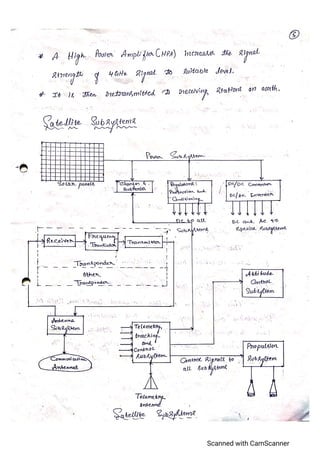 5
* A High Power Amplifier (HPA) Increases the signal
strength of 4GHz signal to suitable level.
* It is then retransmitted to receiving stations on earth.
Satellite Subsystems
Power Subsystem
Solar panels
Charger &
Batteries
Regulators
Protection and
Conditioning
DC/DC Converters
DC/AC Converters
DC to all
Subsystems
DC and AC to
special subsystems
Receiver
Frequency
Translator
Transmitter
Transponder
Other
Transponder
Attitude
Control
Subsystem
Antenna
Subsystem
Communication
Antennas
Telemetry,
tracking
and
Control
Subsystem
Control signals to
all subsystems
Propulsion
Subsystem
Telemetry
antenna
Satellite Subsystems
Scanned with CamScanner